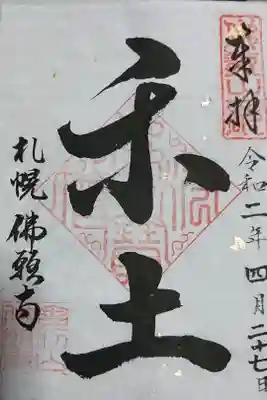 奉拝
令和二年四月二十七日
楽土
札幌 佛願寺